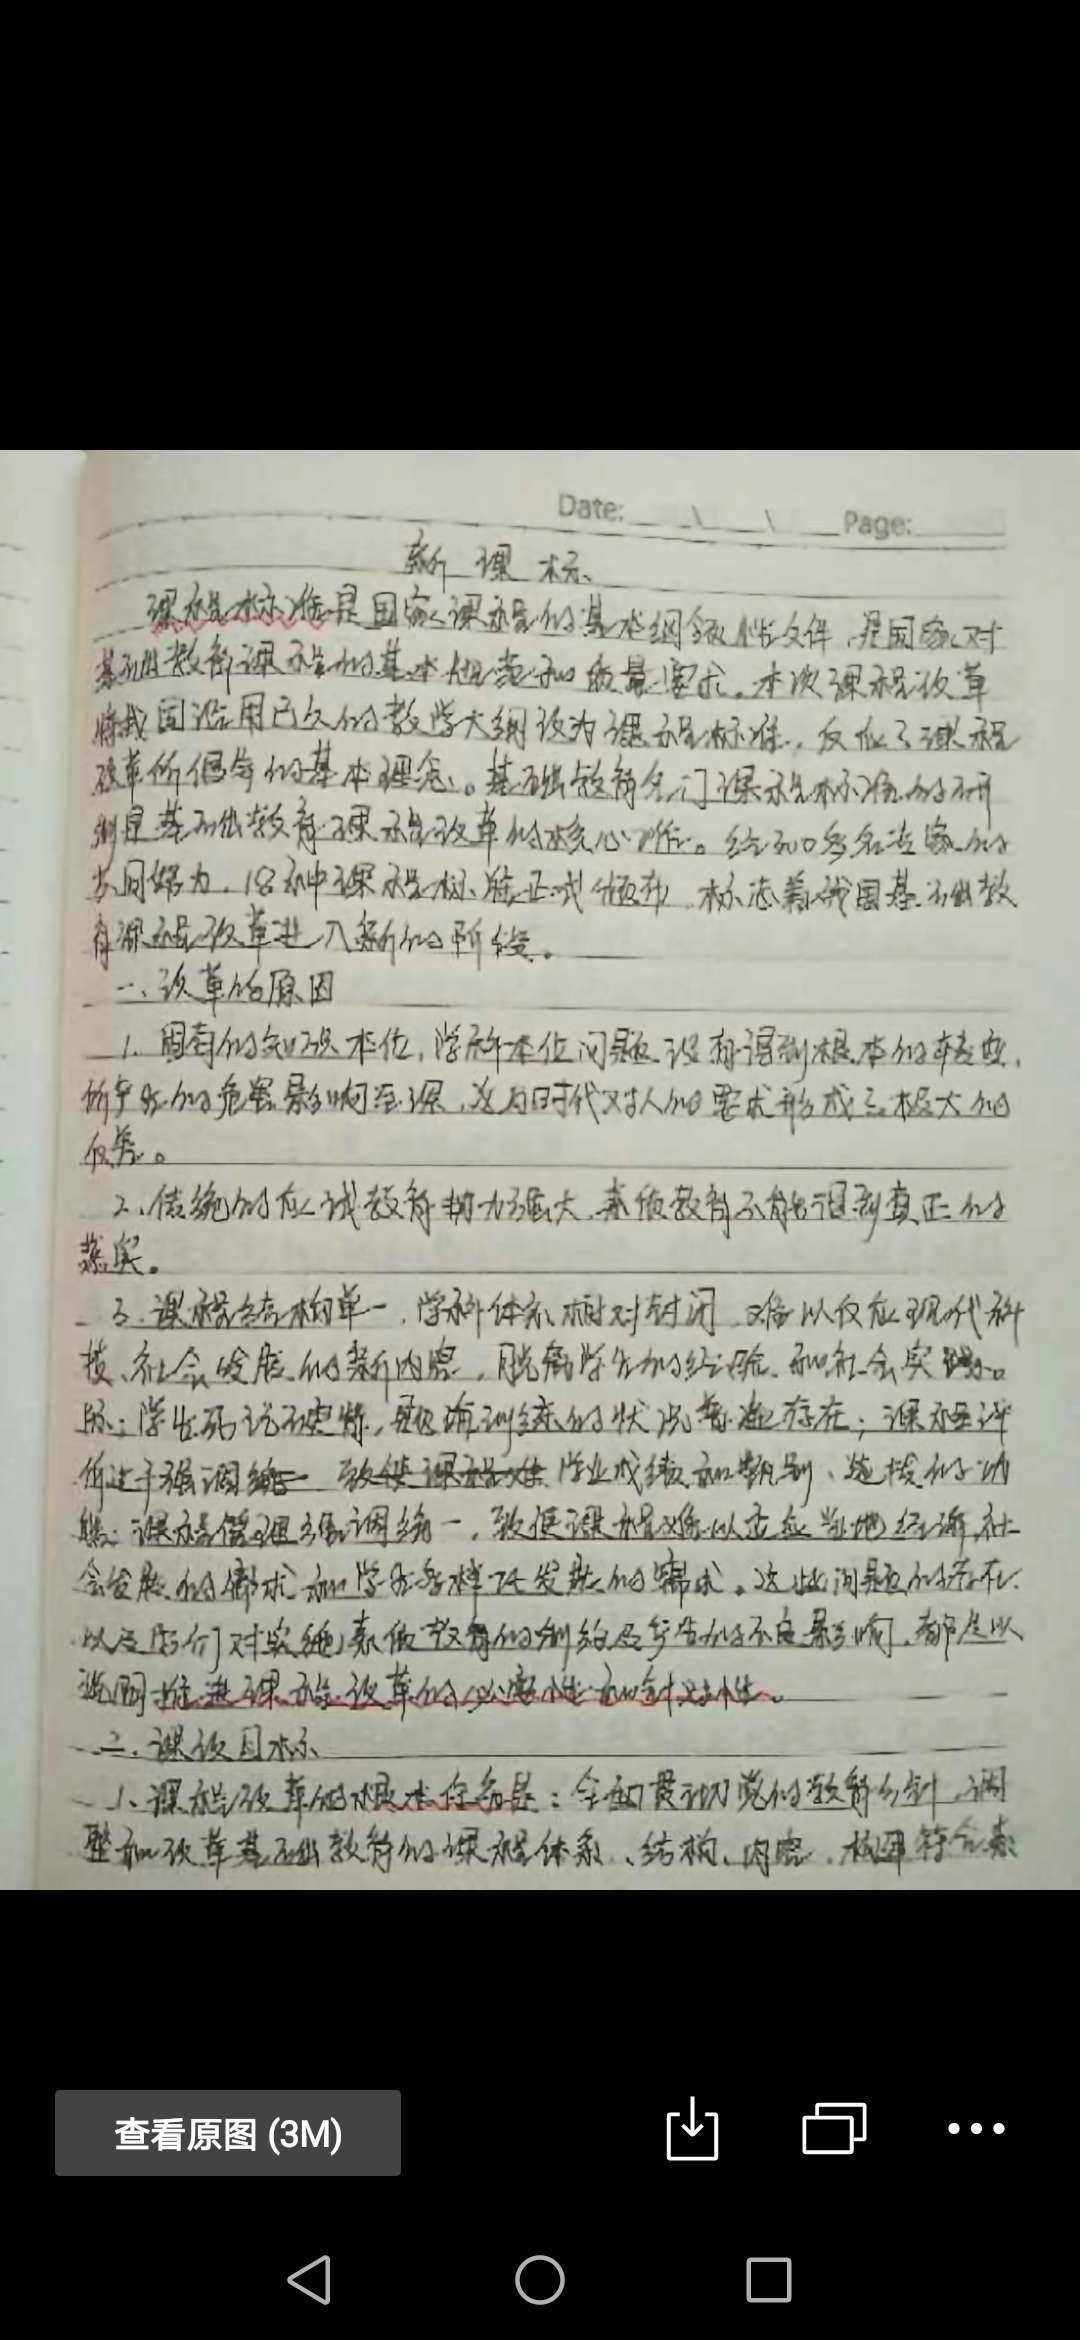 Date: \ \ Page:
新课标
课程标准是国家课程的基本纲领性文件,是国家对
基础教育课程的基本规范和质量要求。本次课程改革
将我国沿用已久的教学大纲改为课程标准,反应了课程
改革所倡导的基本理念。基础教育各门课程标准的研
制是基础教育课程改革的核心工作。经300多名专家的
共同努力,18种课程标准正式颁布,标志着我国基础教
育课程改革进入新的阶段。
一、改革的原因
1. 固有的知识本位,学科本位问题没有得到根本的转变,
所产生的危害影响至深,这与时代对人的要求形成了极大的
反差。
2、传统的应试教育势力强大,素质教育不能得到真正的
落实。
3、课程结构单一,学科体系相对封闭,难以反应现代科
技、社会发展的新内容,脱离学生的经验和社会实践。
学生死记硬背,题海训练的状况普遍存在;课程评
价过于强调学业成绩和甄别、选拔的功
能;课程管理强调统一,致使课程难以适应当地经济,社
会发展的需求和学生多样化发展的需求。这些问题的存在,
以及它们对实施素质教育的制约及产生的不良影响,都足以
说明推进课程改革的必要性和针对性。
二、课改目标
1、课程改革的根本任务是:全面贯彻党的教育方针,调
整和改革基础教育的课程体系、结构、内容,构建符合素
查看原图 (3M)